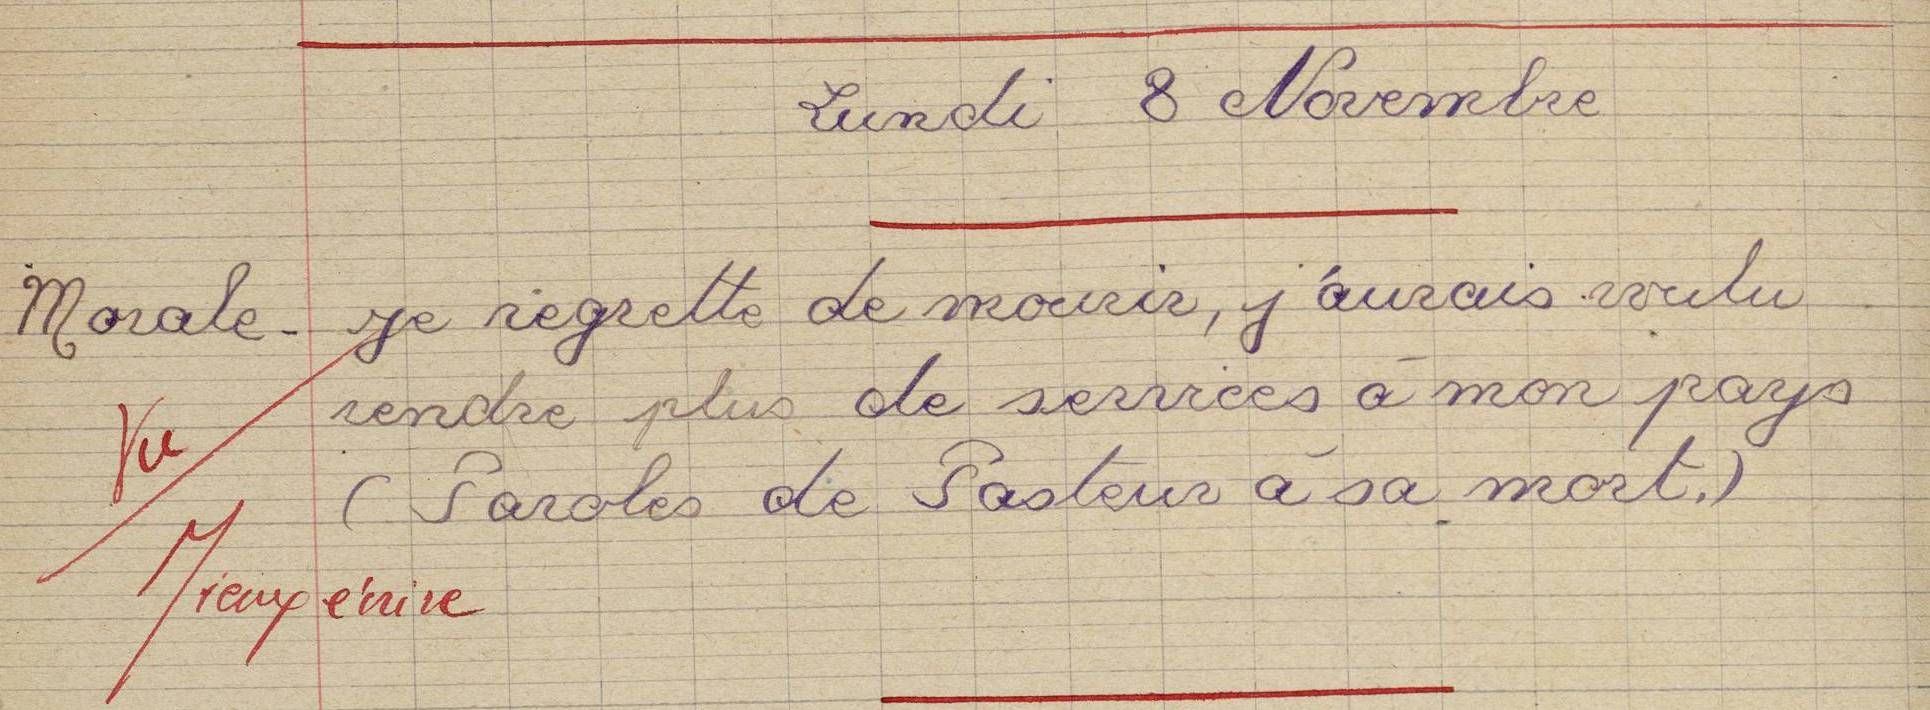 Lundi 8 Novembre
Morale - Je regrette de mourir, j'aurais voulu
rendre plus de services à mon pays
(Paroles de Pasteur à sa mort.)
Vu
Mieux écrire